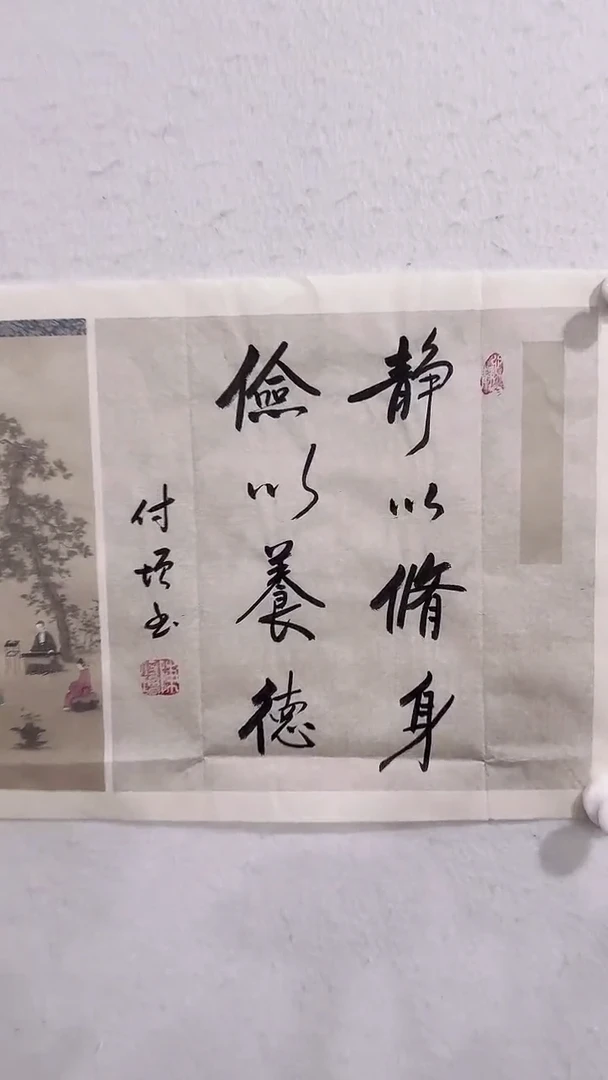 静以脩身
儉以養德
付垻书